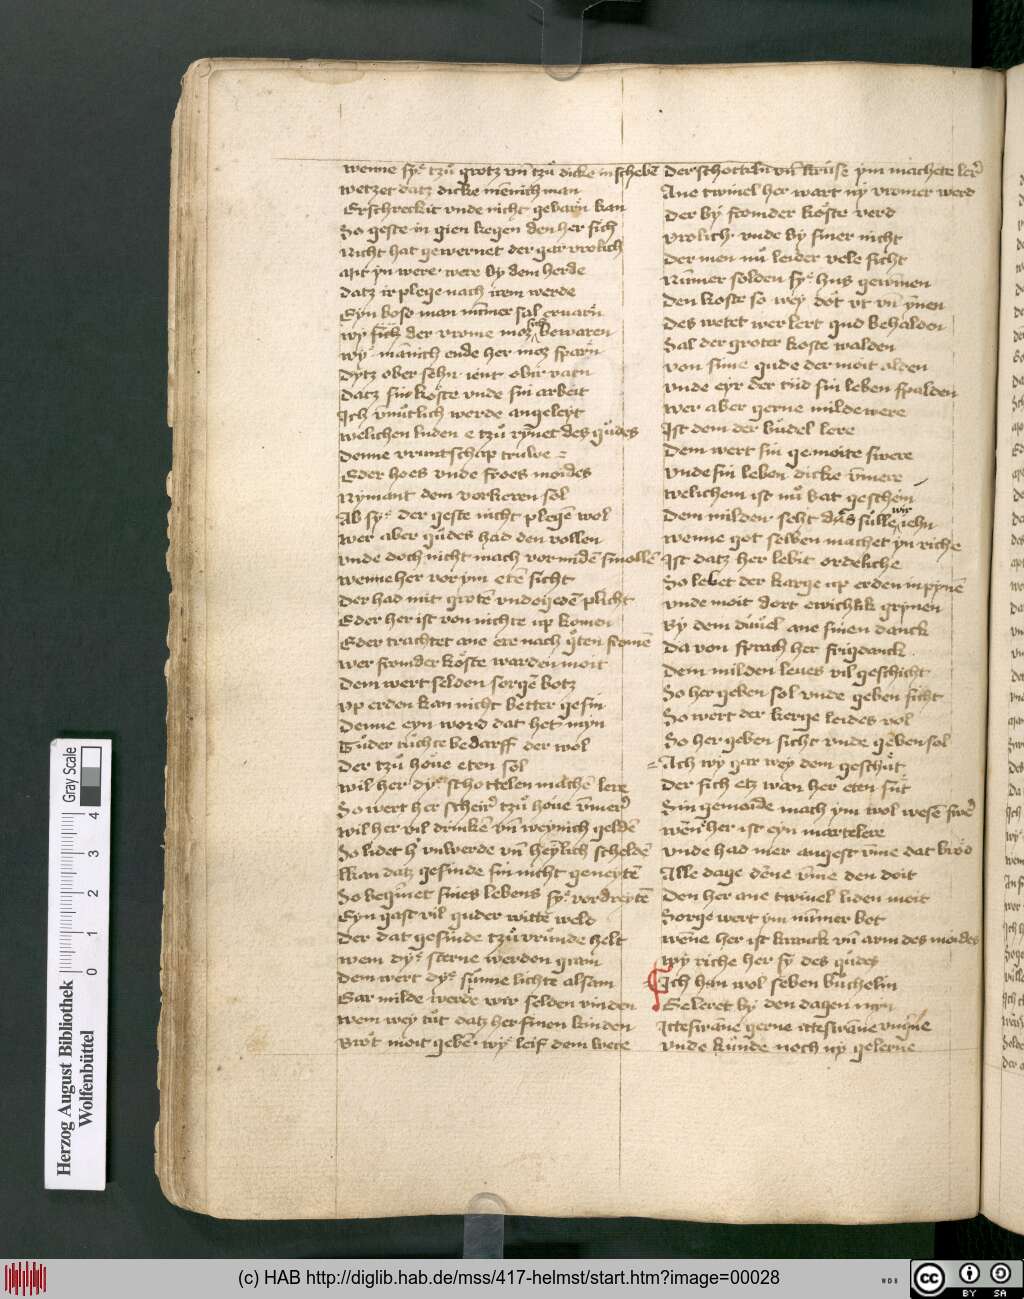 wenne sye tzu grotz vn̄ tzu dicke in schebē
wetzet datz dicke mēnich man
Erschreckit vnde nicht gebarn kan
So geste in gien kegen den her sich
Nicht hat gewernet der gar vrolich
were by dem herde
datz ir plege nach irem werde
Eyn bose man nūmer sal ervarn
wy sich der vrome moz bewaren
wye mānich ende her moz sparn
Dytz ober sehn
datz sin koste vnde sin arbeit
Ich vmutlich werde angeleyt
welichen luden e tzu rynet des gudes
Denne vruntschap truwe =
Eder hoes vnde froes modes
Nymant dem vorkeren sol
Ab sye der geste nicht plegē wol
wer aber gudes had den vollen
vnde doch nicht mach vormidē smollē
wenne her vor ym etē sicht
Der had mit grotē vndogedē plicht
Eder her ist von nichte up komen
Eder trachtet ane ere nach gten fromē
wer fromder koste warden moit
Dem wert selden sorgē botz
vp erden kan nicht better gesin
Denne eyn word dat het myn
Guder tuchte bedarff der wol
Der tzu houe eten sol
wil her dye schottelen machē lere
So wert her scheir tzu houe vmer
wil her vil drinkē vn̄ weynich geldē
So lidet h vnwerde vn̄ heylich scheldē
Man datz gesinde sin nicht geneytē
So begīnet sines lebens sye vordreytē
Eyn gast vil guder witte weld
Der dat gesinde tzu vrunde helt
wem dye sterne werden gram
Dem wert dye sunne lichte alsam
Gar milde werde wir selden vinden
wem wey tut datz her sinen kinden
Brot moit gebē wye leif dem wete
Der schotteln vn̄ kruse ym machete ler
Ane twiuel her wart ny vromer werd
Der by fromder koste verd
vrolich vnde by siner nicht
Der men nu leider vele sicht
Nūmer solden sye hus gewinnen
Den koste so wey dot vt vn̄ ynen
Des wetet wer lert gud behalden
Sal der groter koste walden
von sime gude der moit alden
vnde eyr der tiid sin leben spalden
wer aber gerne milde were
Ist dem der budel lere
Dem wert sin gemoite swere
vnde sin leben dicke vmere
welichem ist nu bat geschen
Dem milden seht das sulle wir iehn
wenne got selben machet yn riche
Ist datz her lebit ordeliche
So lebet der karge up erden in pynē
vnde moit dort ewichlik grynen
By dem duuel ane sinen danck
Da von sprach her frigedanck
Dem milden leues vil geschicht
So her geben sol vnde geben sicht
So wert der kerge leides vol
So her geben sicht vnde gēben sol
= Ach wy gar wey dem geschut
Der sich etz wan her eten sut
Sin gemoide mach ym wol wesē swer
wēne her ist eyn martelere
vnde had mer angest vme dat brod
Alle dage dēne vme den doit
Den her ane twiuel liden moit
Sorge wert ym nūmer bot
wēne her ist kranck vn̄ arm des modes
wy riche her sy des gudes
Ich han wol seben buchelin
Geleret by den dagen myn
gerne
vnde kunde noch ny gelerne
Herzog August Bibliothek
Wolfenbüttel
Gray Scale
0 1 2 3 4
(c) HAB http://diglib.hab.de/mss/417-helmst/start.htm?image=00028
WDB
cc BY SA